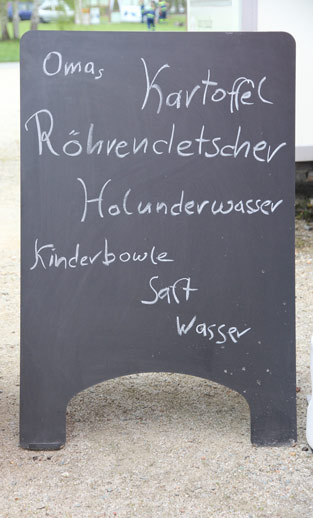 Omas
Kartoffel
Röhrendetscher
Holunderwasser
Kinderbowle
Saft
Wasser